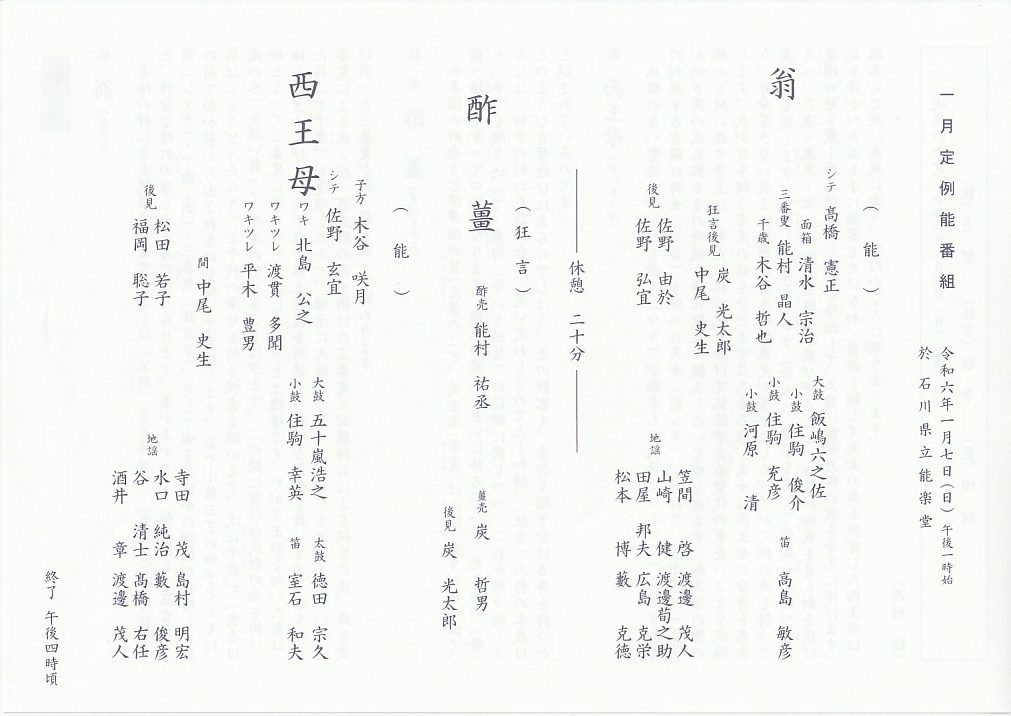 一月定例能番組
令和六年一月七日（日）午後一時始
於 石川県立能楽堂
（能）
翁
シテ 髙橋 憲正
面箱 清水 宗治
三番叟 能村 晶人
千歳 木谷 哲也
狂言後見 炭 光太郎
中尾 史生
後見 佐野 由於
佐野 弘宜
大鼓 飯嶋六之佐
小鼓 住駒 俊介
小鼓 住駒 充彦
小鼓 河原 清
笛 高島 敏彦
地謡
笠間 啓 渡邊 茂人
山崎 健 渡邊荀之助
田屋 邦夫 広島 克栄
松本 博 藪 克徳
休憩 二十分
（狂言）
酢薑
酢売 能村 祐丞
薑売 炭 哲男
後見 炭 光太郎
（能）
西王母
子方 木谷 咲月
シテ 佐野 玄宜
ワキ 北島 公之
ワキツレ 渡貫 多聞
ワキツレ 平木 豊男
間 中尾 史生
後見 松田 若子
福岡 聡子
大鼓 五十嵐浩之
小鼓 住駒 幸英
太鼓 徳田 宗久
笛 室石 和夫
地謡
寺田 茂 島村 明宏
水口 純治 藪 俊彦
谷 清士 髙橋 右任
酒井 章 渡邊 茂人
終了 午後四時頃